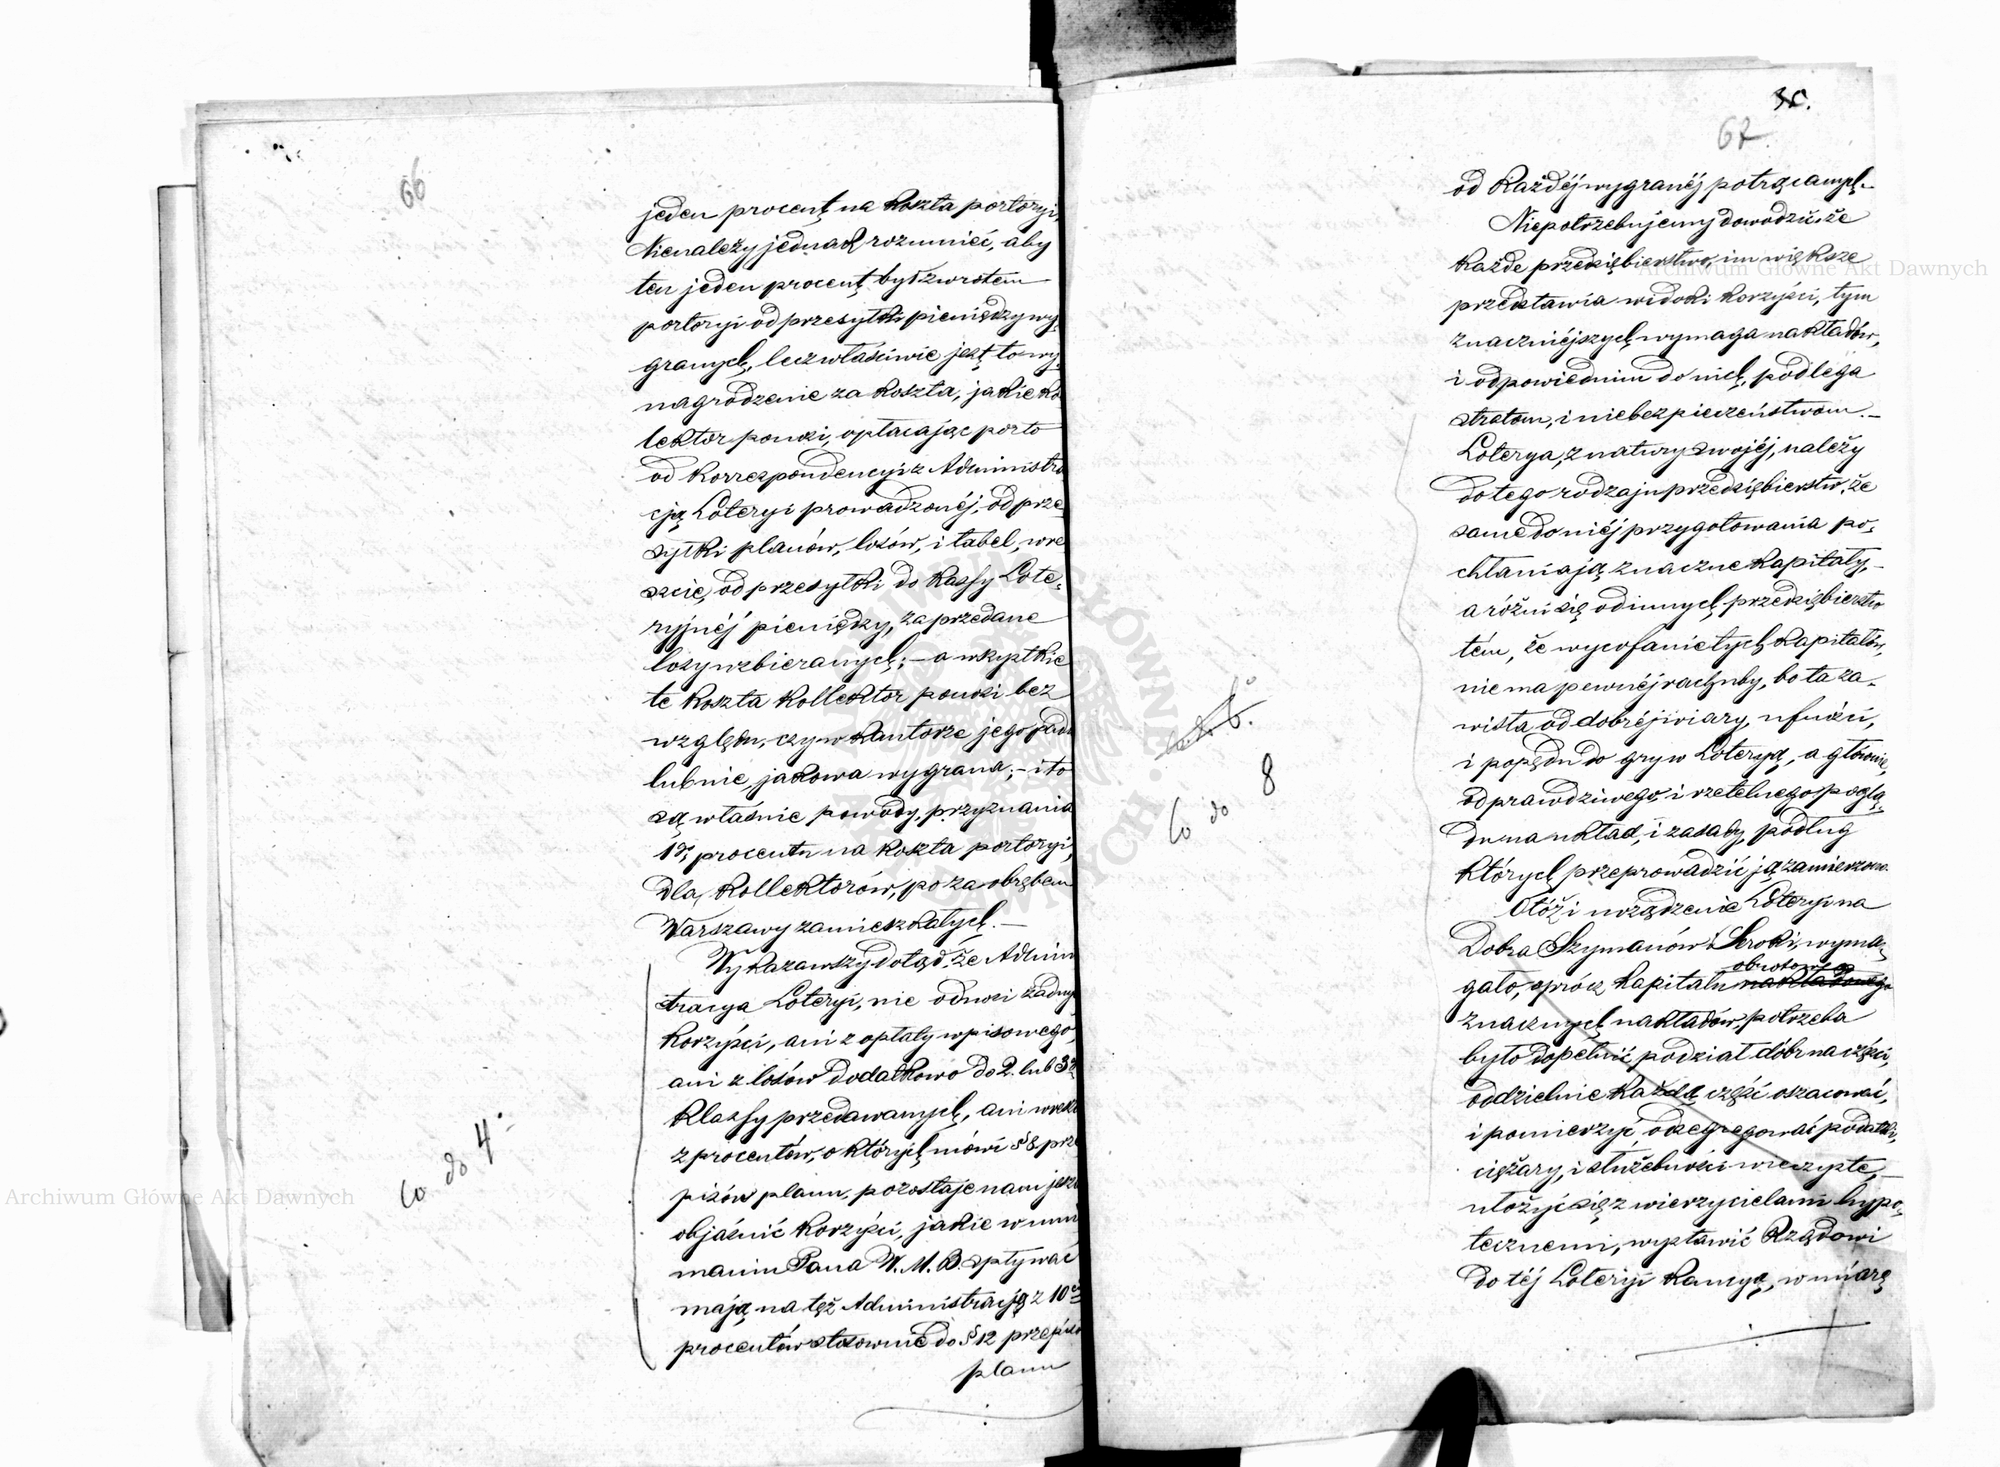 66
jeden procent na koszta portoryi,
Nienależy jednak rozumieć, aby
ten jeden procent był zwrotem
portoryi od przesyłki pieniędzy wy-
granych, lecz właściwie jest to wy-
nagrodzenie za koszta, jakie ko
lektor ponosi, opłacając porto
od korrespondencyi z Administra
cją Loteryi prowadzonéj, od prze
syłki planów, losów, i tabel, wre
szcie, od przesyłki do Kassy Lote-
ryjnéj pieniędzy, za przedane
losy wzbieranych; – a wszystkie
te koszta kollektor ponosi bez
względu, czy w kantorze jego padł
lub nie, jakowa wygrana; – i to
są właśnie powody, przyznania
1go procentu na koszta portoryi,
dla kollektorów, po za obrębem
Warszawy zamieszkałych. –
Wykazawszy dotąd, że Adminis
tracya Loteryi, nie odnosi żadny
korzyści, ani z opłaty wpisowego,
ani z losów dodatkowo do 2. lub 3éj
klassy przedawanych, ani wresz
z procentów, o których mówi § 8 prze
pisów planu, pozostaje nam jesz
objaśnić korzyści, jakie w mnie
maniu Pana W. M. B. spływać
mają na tęż Administracją z 10u
procentów stosownie do § 12 przepisó
planu
Co do 4º
67.
od każdéj wygranéj potrącanych. –
Niepotrzebujemy dowodzić, że
każde przedsiębierstwo, im większe
przedstawia widoki korzyści, tym
znaczniéjszych wymaga nakładów,
i odpowiednim do nich, podlega
stratom, i niebezpieczeństwom. –
Loterya, z natury swojéj, należy
do tego rodzaju przedsiębierstw, że
same do niéj przygotowania po-
chłaniają znaczne kapitały, –
a różni się od innych przedsiębierstw
tém, że wycofanie tych kapitałów,
nie ma pewnéj rachuby, bo ta za-
wisła od dobréj wiary, ufności,
i popędu do gry w Loteryą, a głównie,
od prawdziwego, i rzetelnego poglą-
du na układ, i zasady, podług
których przeprowadzić ją zamierzono.
Otóż i urządzenie Loteryi na
Dobra Szymanów i Seroki, wyma-
obrotowego
gało, oprócz kapitału nakładowego
znacznych nakładów, potrzeba
było dopełnić podział dóbr na części,
oddzielnie każdą część oszacować,
i pomierzyć, odsegregować podatki,
ciężary, i służebności wieczyste, –
ułożyć się z wierzycielami hypo-
tecznemi, wystawić Rządowi
do téj Loteryi kaucyą, w miarę
Co do 8
Archiwum Główne Akt Dawnych
Archiwum Główne Akt Dawnych